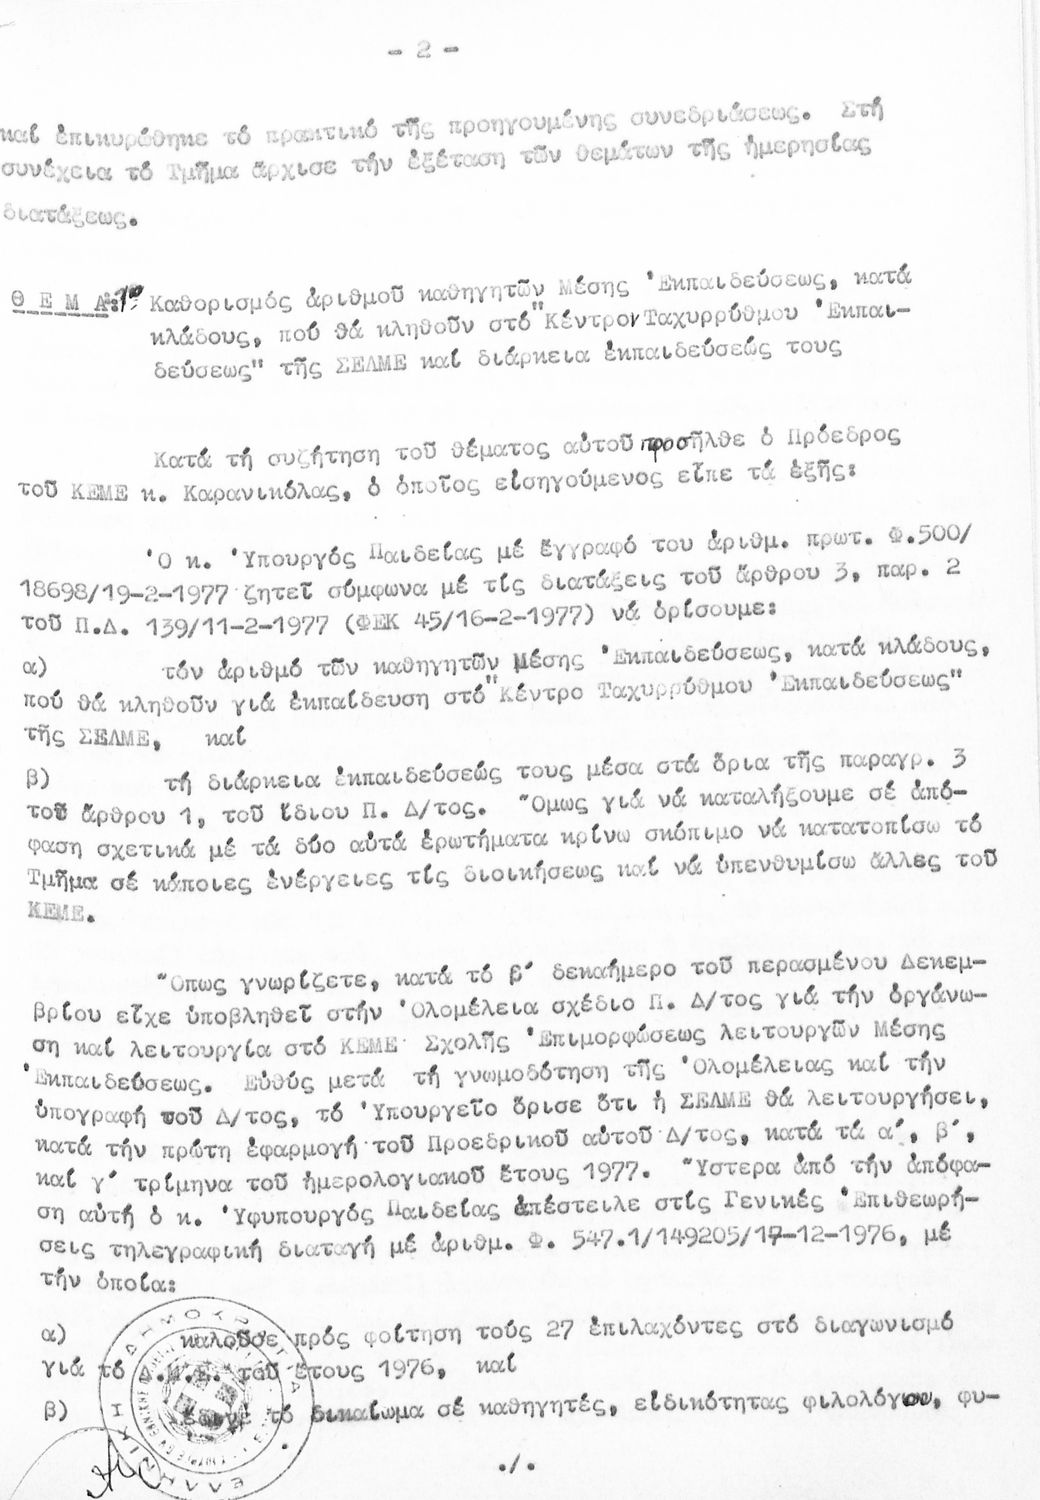 - 2 -
καί ἐπικυρώθηκε τό πρακτικό τῆς προηγουμένης συνεδριάσεως. Στή
συνέχεια τό Τμῆμα ἄρχισε τήν ἐξέταση τῶν θεμάτων τῆς ἡμερησίας
διατάξεως.
Θ Ε Μ Α: 1ο Καθορισμός ἀριθμοῦ καθηγητῶν Μέσης Ἐκπαιδεύσεως, κατά
κλάδους, πού θά κληθοῦν στό "Κέντρο Ταχυρρύθμου Ἐκπαι-
δεύσεως" τῆς ΣΕΛΜΕ καί διάρκεια ἐκπαιδεύσεώς τους
Κατά τή συζήτηση τοῦ θέματος αὐτοῦ προσῆλθε ὁ Πρόεδρος
τοῦ ΚΕΜΕ κ. Καρανικόλας, ὁ ὁποῖος εἰσηγούμενος εἶπε τά ἑξῆς:
Ὁ κ. Ὑπουργός Παιδείας μέ ἔγγραφό του ἀριθμ. πρωτ. Φ.500/
18698/19-2-1977 ζητεῖ σύμφωνα μέ τίς διατάξεις τοῦ ἄρθρου 3, παρ. 2
τοῦ Π.Δ. 139/11-2-1977 (ΦΕΚ 45/16-2-1977) νά ὁρίσουμε:
α) τόν ἀριθμό τῶν καθηγητῶν Μέσης Ἐκπαιδεύσεως, κατά κλάδους,
πού θά κληθοῦν γιά ἐκπαίδευση στό "Κέντρο Ταχυρρύθμου Ἐκπαιδεύσεως"
τῆς ΣΕΛΜΕ, καί
β) τή διάρκεια ἐκπαιδεύσεώς τους μέσα στά ὅρια τῆς παραγρ. 3
τοῦ ἄρθρου 1, τοῦ ἴδιου Π. Δ/τος. Ὅμως γιά νά καταλήξουμε σέ ἀπό-
φαση σχετικά μέ τά δύο αὐτά ἐρωτήματα κρίνω σκόπιμο νά κατατοπίσω τό
Τμῆμα σέ κάποιες ἐνέργειες τίς διοικήσεως καί νά ὑπενθυμίσω ἄλλες τοῦ
ΚΕΜΕ.
Ὅπως γνωρίζετε, κατά τό β΄ δεκαήμερο τοῦ περασμένου Δεκεμ-
βρίου εἶχε ὑποβληθεῖ στήν Ὁλομέλεια σχέδιο Π. Δ/τος γιά τήν ὀργάνω-
ση καί λειτουργία στό ΚΕΜΕ Σχολῆς Ἐπιμορφώσεως λειτουργῶν Μέσης
Ἐκπαιδεύσεως. Εὐθύς μετά τή γνωμοδότηση τῆς Ὁλομέλειας καί τήν
ὑπογραφή τοῦ Δ/τος, τό Ὑπουργεῖο ὅρισε ὅτι ἡ ΣΕΛΜΕ θά λειτουργήσει,
κατά τήν πρώτη ἐφαρμογή τοῦ Προεδρικοῦ αὐτοῦ Δ/τος, κατά τά α΄, β΄,
καί γ΄ τρίμηνα τοῦ ἡμερολογιακοῦ ἔτους 1977. Ὕστερα ἀπό τήν ἀπόφα-
ση αὐτή ὁ κ. Ὑφυπουργός Παιδείας ἀπέστειλε στίς Γενικές Ἐπιθεωρή-
σεις τηλεγραφική διαταγή μέ ἀριθμ. Φ. 547.1/149205/17-12-1976, μέ
τήν ὁποία:
α) καλοῦσε πρός φοίτηση τούς 27 ἐπιλαχόντες στό διαγωνισμό
γιά τό Δ.Μ.Ε. τοῦ ἔτους 1976, καί
β) ἔδινε τό δικαίωμα σέ καθηγητές, εἰδικότητας φιλολόγου, φυ-
./.